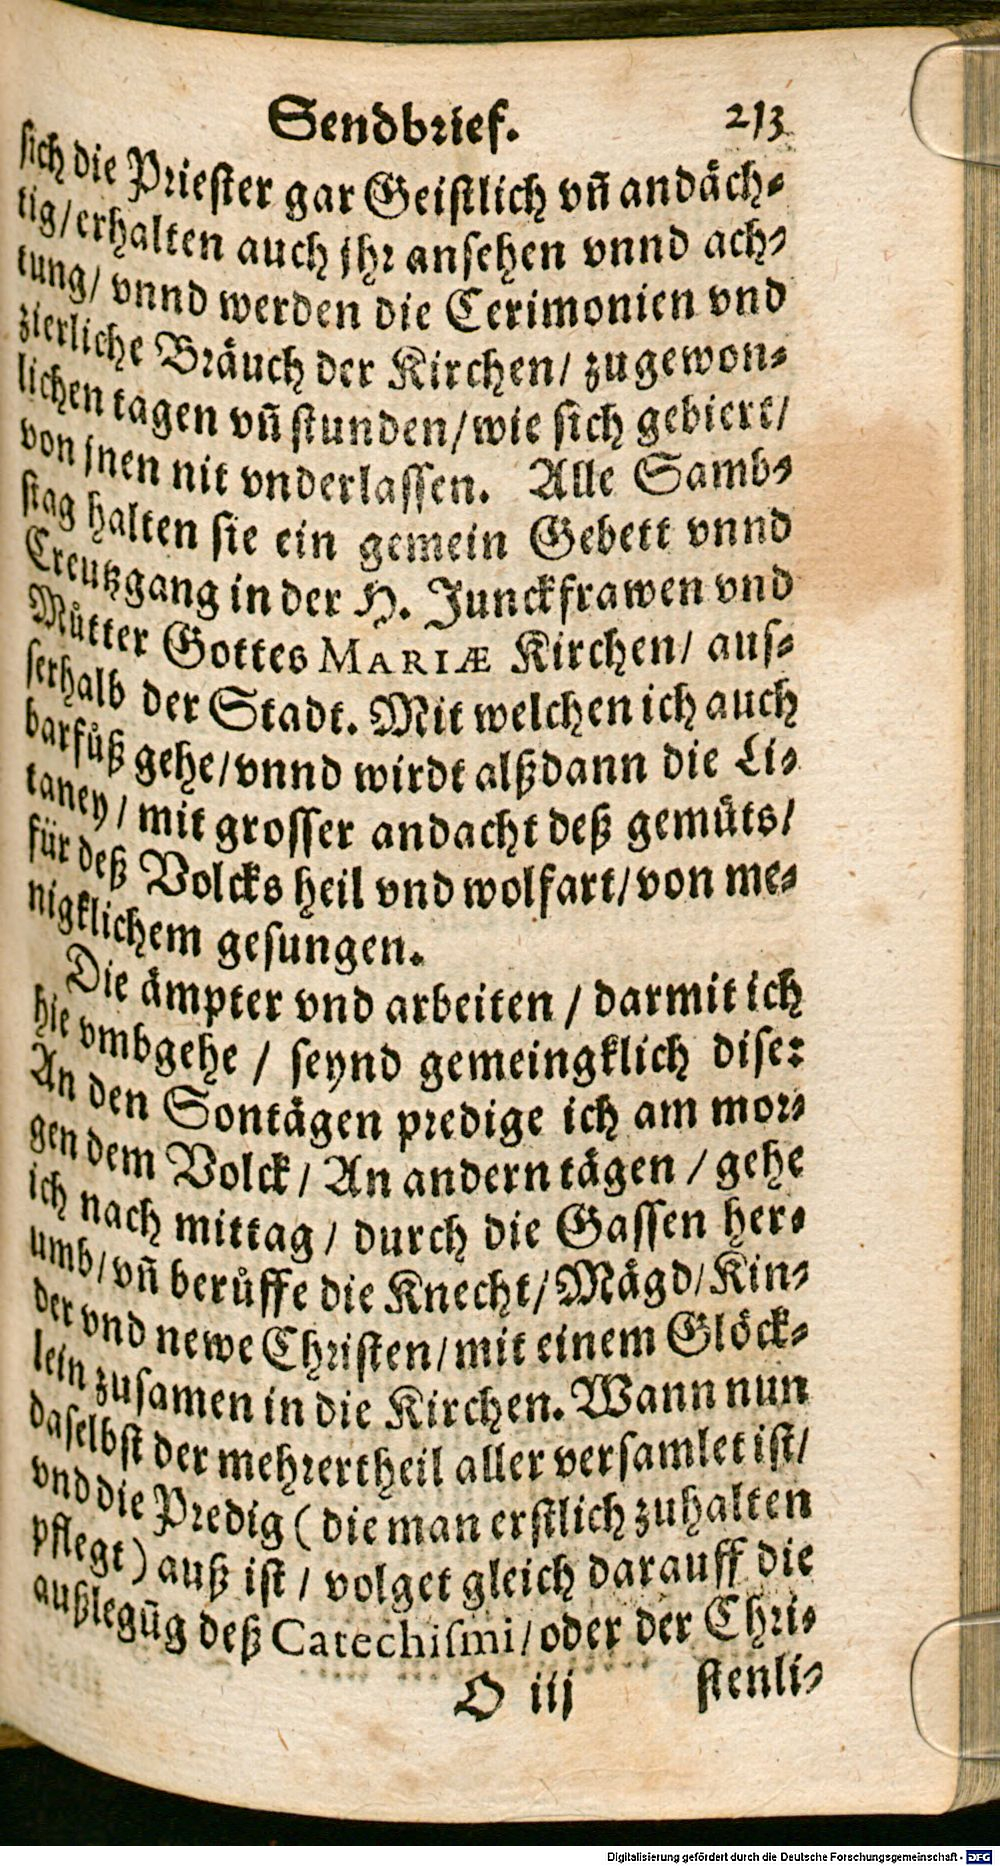 Sendbrief. 213
sich die Priester gar Geistlich vñ andäch-
tig/ erhalten auch jhr ansehen vnnd ach-
tung/ vnnd werden die Cerimonien vnd
zierliche Bräuch der Kirchen/ zu gewon-
lichen tagen vñ stunden/ wie sich gebiert/
von jnen nit vnderlassen. Alle Samb-
stag halten sie ein gemein Gebett vnnd
Creutzgang in der H. Junckfrawen vnd
Můtter Gottes MARIÆ Kirchen/ aus-
serhalb der Stadt. Mit welchen ich auch
barfůß gehe/ vnnd wirdt alßdann die Li-
taney/ mit grosser andacht deß gemüts/
für deß Volcks heil vnd wolfart/ von me-
nigklichem gesungen.
Die ämpter vnd arbeiten / darmit ich
hie vmbgehe / seynd gemeingklich dise:
An den Sontägen predige ich am mor-
gen dem Volck/ An andern tägen / gehe
ich nach mittag / durch die Gassen her-
umb/ vñ berůffe die Knecht/ Mägd/ Kin-
der vnd newe Christen/ mit einem Glöck-
lein zusamen in die Kirchen. Wann nun
daselbst der mehrertheil aller versamlet ist/
vnd die Predig ( die man erstlich zuhalten
pflegt ) auß ist / volget gleich darauff die
außlegũg deß Catechismi/ oder der Chri-
O iij stenli-
Digitalisierung gefördert durch die Deutsche Forschungsgemeinschaft - DFG